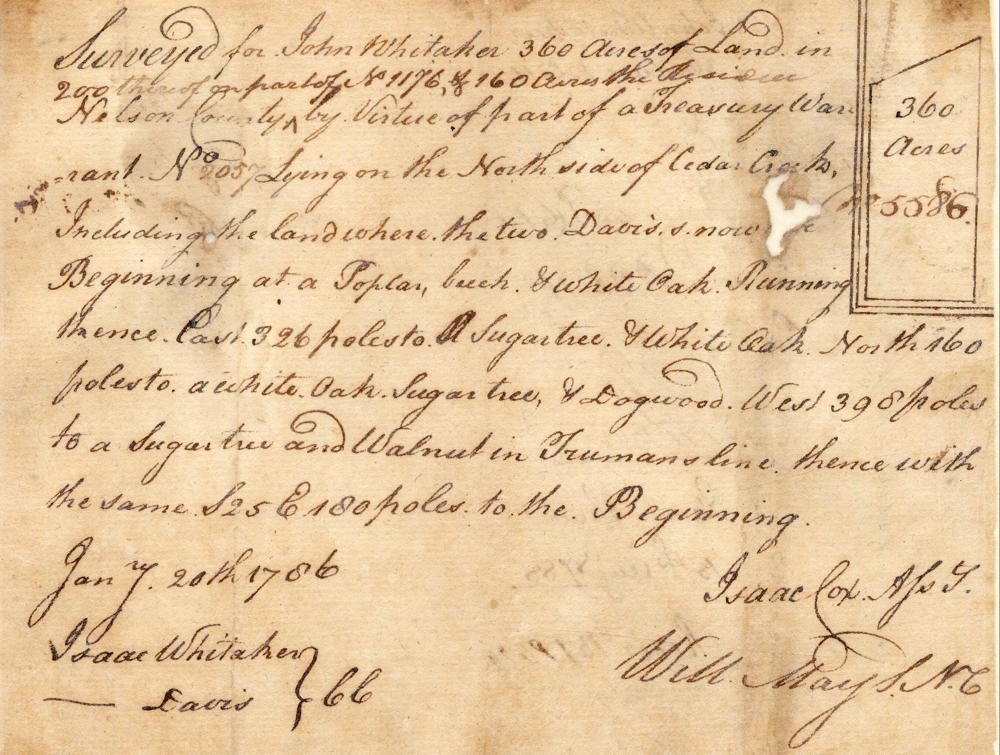 Surveyed for John Whitaker 360 Acres of Land in
200 thereof on part of No 1176, & 160 Acres the Residue
Nelson County, ^ by Virtue of part of a Treasury War
-rant. No 2057 Lying on the North side of Cedar Creek,
Including the land where the two Davis.s. now
Beginning at a Poplar, beech. & white Oak. Running
thence. East. 326 poles to. A Sugartree. & White Oak. North 160
poles to. a white. Oak. Sugartree, & Dogwood. West 398 poles
to a Sugartree and Walnut in Trumans line. thence with
the same. S25 E. 180 poles. to. the. Beginning.
Jany. 20th 1786
Isaac Cox. Ass T.
Isaac Whitaker
— Davis } CC
Will. May S. N. C
360
Acres
No 5586.